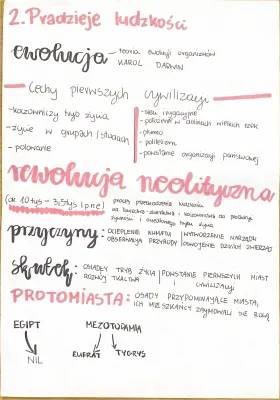 2. Pradzieje ludzkości
ewolucja - teoria ewolucji organizmów
KAROL DARWIN
Cechy pierwszych cywilizacji
- koczowniczy tryb życia
- życie w grupach / stadach
- polowanie
- sieci irygacyjne
- położenie w dolinach wielkich rzek
- pismo
- politeizm
- powstanie organizacji państwowej
rewolucja neolityczna
(ok. 10 tys - 3,5 tys l p.n.e)
proces przechodzenia ludzkości
od łowiectwa-zbieractwa i koczownictwa do
i osiadłego trybu życia
przyczyny: OCIEPLENIE KLIMATU | WYTWORZENIE NARZĘDZI
OBSERWACJA PRZYRODY | OSWOJENIE DZIKICH ZWIERZĄT
Skutek: OSIADŁY TRYB ŻYCIA | POWSTANIE PIERWSZYCH MIAST
ROZWÓJ TKACTWA | I CYWILIZACJI
PROTOMIASTA: OSADY PRZYPOMINAJĄCE MIASTA,
ICH MIESZKAŃCY ZAJMOWALI SIĘ ROLĄ
EGIPT MEZOPOTAMIA
NIL EUFRAT TYGRYS